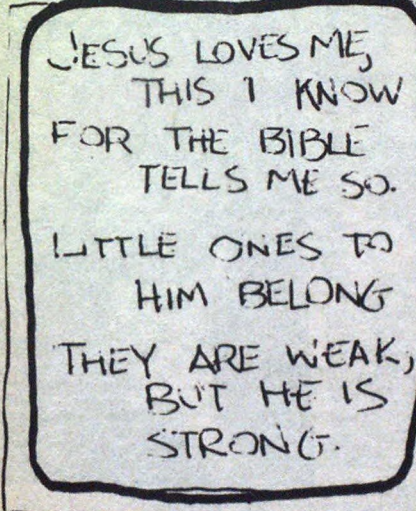 JESUS LOVES ME,
THIS I KNOW
FOR THE BIBLE
TELLS ME SO.
LITTLE ONES TO
HIM BELONG
THEY ARE WEAK,
BUT HE IS
STRONG.